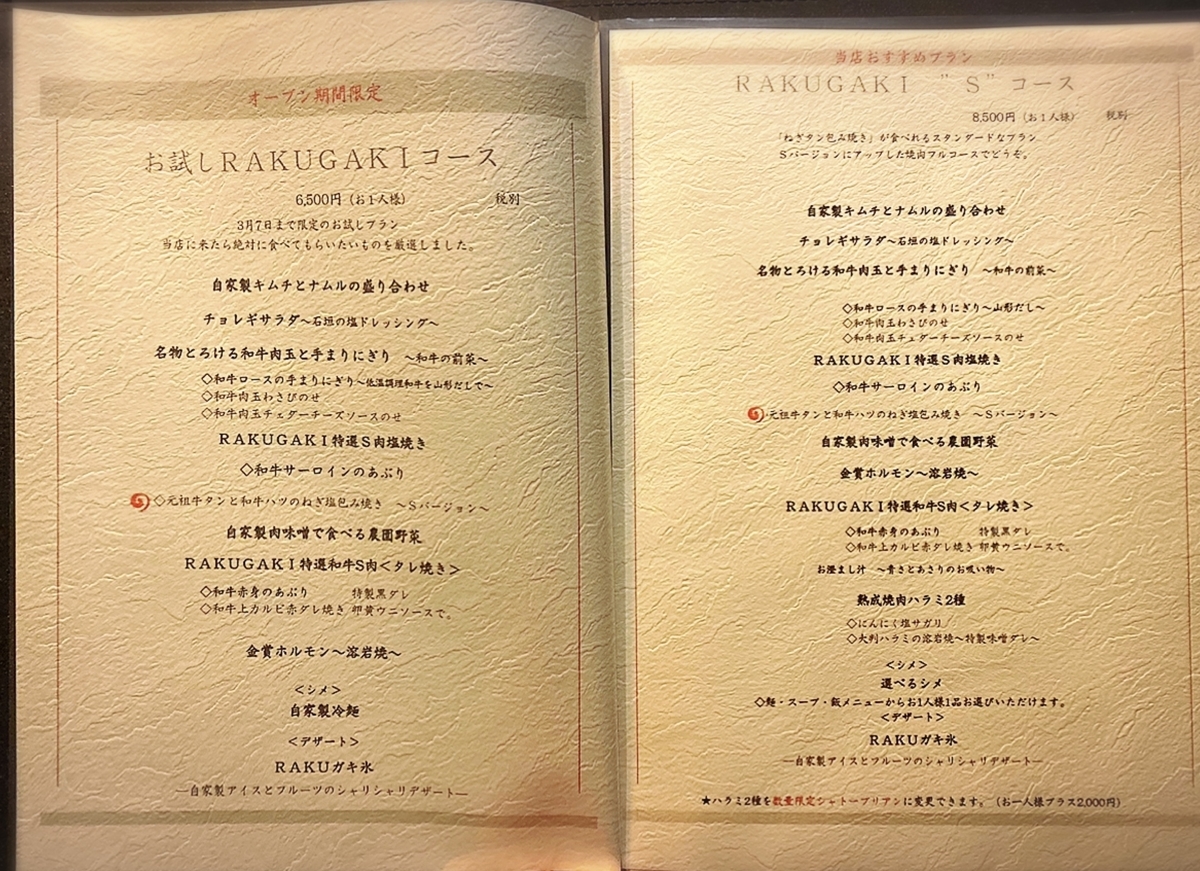 オープン期間限定
お試しRAKUGAKIコース
6,500円（お1人様） 税別
3月7日まで限定のお試しプラン
当店に来たら絶対に食べてもらいたいものを厳選しました。
自家製キムチとナムルの盛り合わせ
チョレギサラダ～石垣の塩ドレッシング～
名物とろける和牛肉玉と手まりにぎり ～和牛の前菜～
◇和牛ロースの手まりにぎり～低温調理和牛を山形だしで～
◇和牛肉玉わさびのせ
◇和牛肉玉チェダーチーズソースのせ
RAKUGAKI特選S肉塩焼き
◇和牛サーロインのあぶり
◇元祖牛タンと和牛ハツのねぎ塩包み焼き ～Sバージョン～
自家製肉味噌で食べる農園野菜
RAKUGAKI特選和牛S肉＜タレ焼き＞
◇和牛赤身のあぶり 特製黒ダレ
◇和牛上カルビ赤ダレ焼き 卵黄ウニソースで。
金賞ホルモン～溶岩焼～
＜シメ＞
自家製冷麺
＜デザート＞
RAKUガキ氷
―自家製アイスとフルーツのシャリシャリデザート―
当店おすすめプラン
RAKUGAKI ”S”コース
8,500円（お1人様） 税別
「ねぎタン包み焼き」が食べれるスタンダードなプラン
Sバージョンにアップした焼肉フルコースでどうぞ。
自家製キムチとナムルの盛り合わせ
チョレギサラダ～石垣の塩ドレッシング～
名物とろける和牛肉玉と手まりにぎり ～和牛の前菜～
◇和牛ロースの手まりにぎり～山形だし～
◇和牛肉玉わさびのせ
◇和牛肉玉チェダーチーズソースのせ
RAKUGAKI特選S肉塩焼き
◇和牛サーロインのあぶり
元祖牛タンと和牛ハツのねぎ塩包み焼き ～Sバージョン～
自家製肉味噌で食べる農園野菜
金賞ホルモン～溶岩焼～
RAKUGAKI特選和牛S肉＜タレ焼き＞
◇和牛赤身のあぶり 特製黒ダレ
◇和牛上カルビ赤ダレ焼き 卵黄ウニソースで。
お澄まし汁 ～青さとあさりのお吸い物～
熟成焼肉ハラミ2種
◇にんにく塩サガリ
◇大判ハラミの溶岩焼～特製味噌ダレ～
＜シメ＞
選べるシメ
◇麺・スープ・飯メニューからお1人様1品お選びいただけます。
＜デザート＞
RAKUガキ氷
―自家製アイスとフルーツのシャリシャリデザート―
★ハラミ2種を数量限定シャトーブリアンに変更できます。（お一人様プラス2,000円）